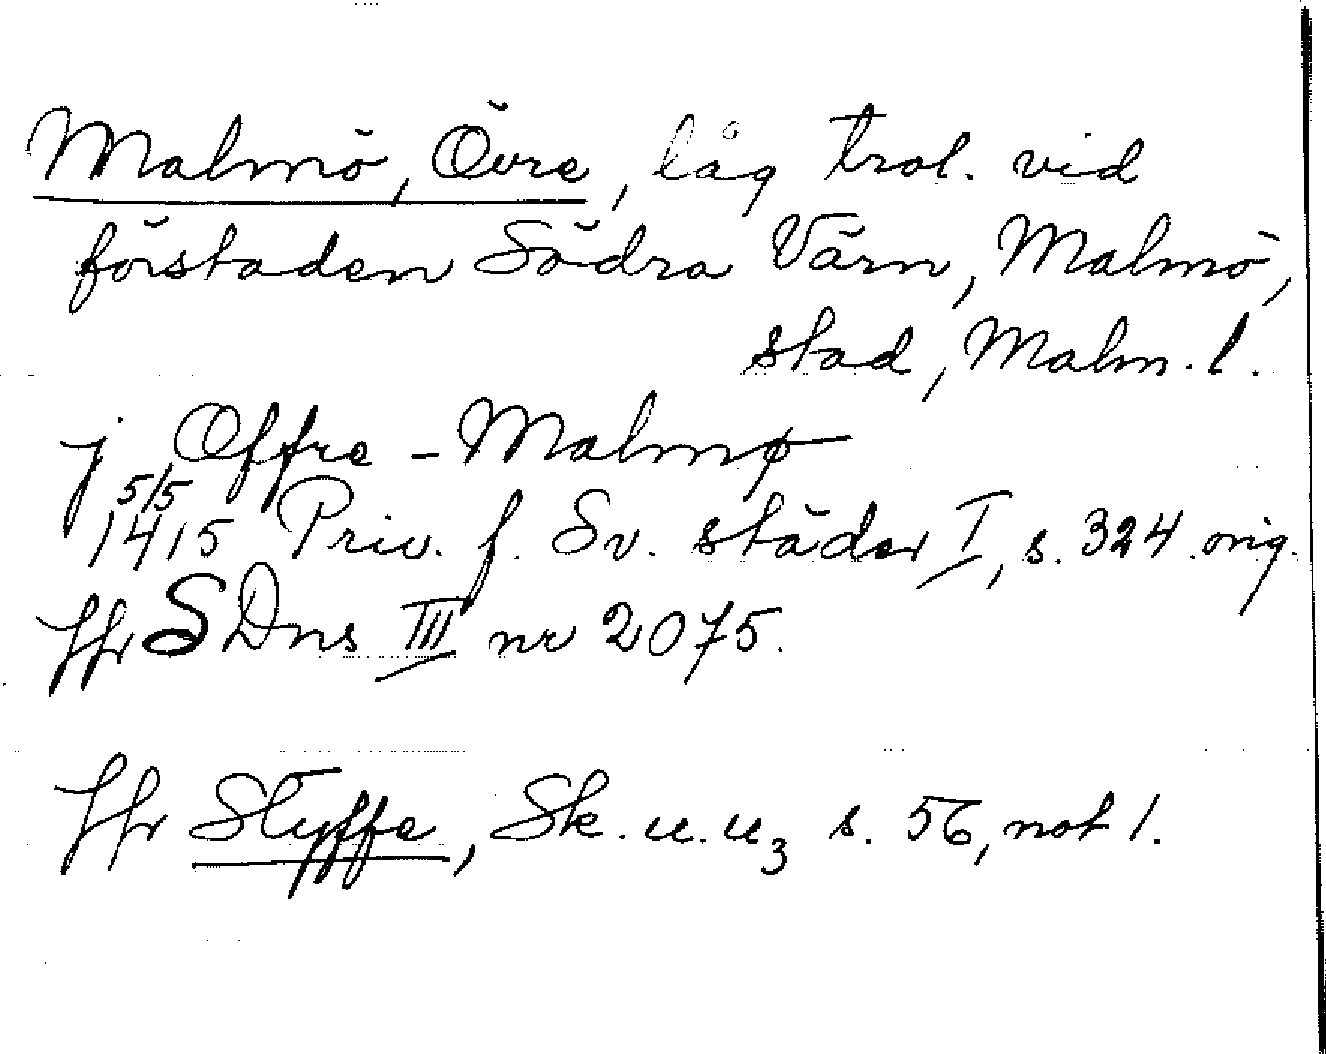 Malmö, Övre, låg trol. vid
förstaden Södra Värn, Malmö,
stad, Malm. l.
j Offre-Malmø
5/5
1415 Priv. f. Sv. städer I, s. 324 orig.
Jfr SDns III nr 2075.
Jfr Styffe, Sk. u. u3 s. 56, not 1.